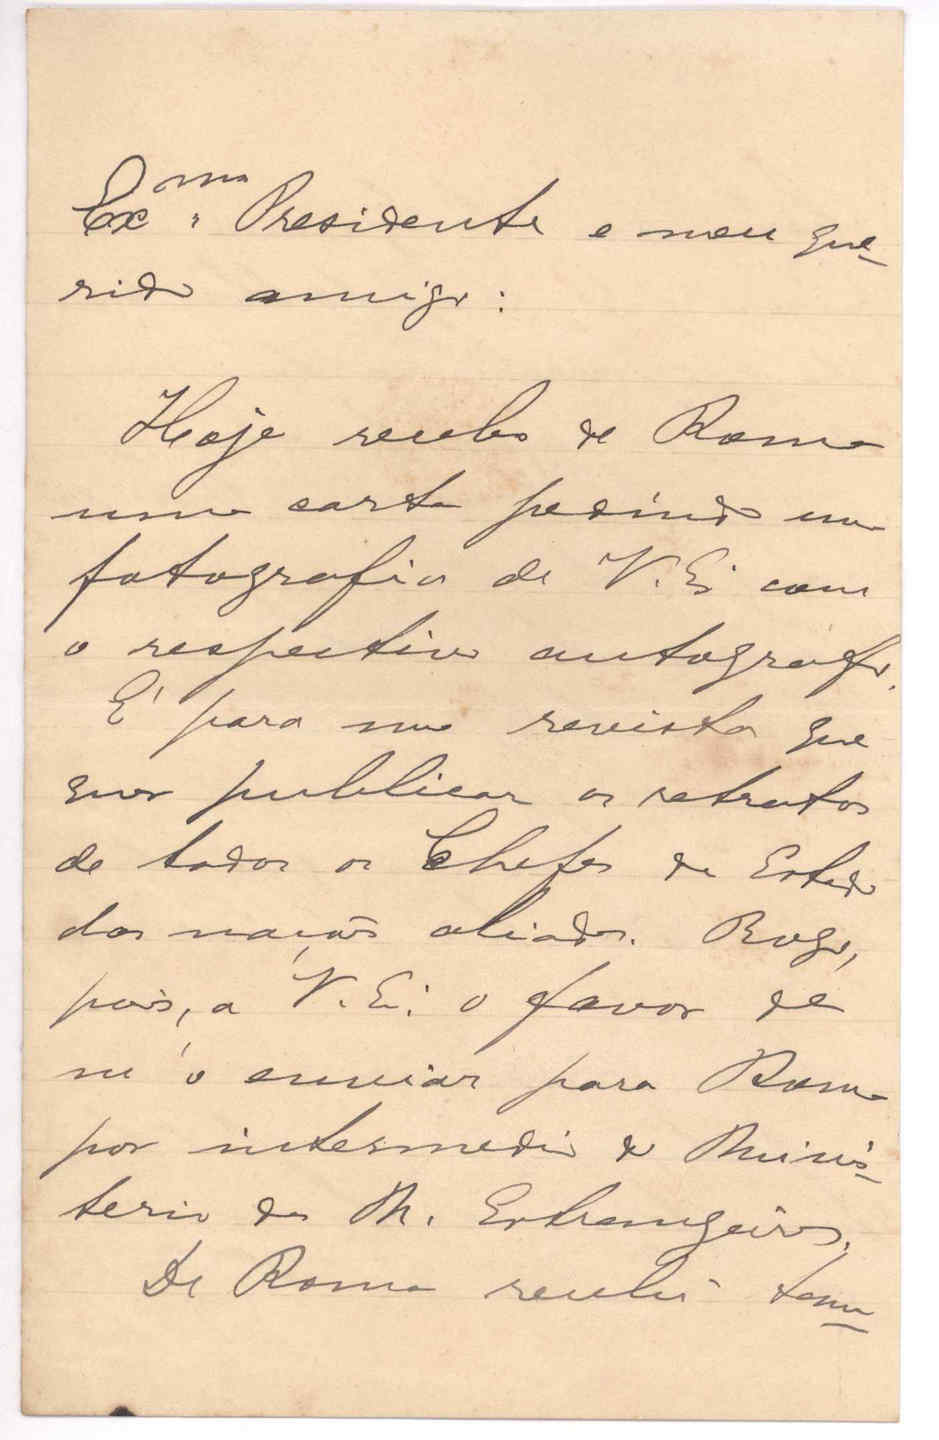 Exmo. Presidente e meu que-
rido amigo:
Hoje recebo de Roma
uma carta pedindo uma
fotografia de V. Ex. com
o respectivo autografo.
E' para uma revista que
quer publicar os retratos
de todos os Chefes de Estado
das nações aliadas. Rogo,
pois, a V. Ex. o favor de
m'o enviar para Roma
por intermedio do Minis-
terio dos N. Extrangeiros.
De Roma recebi tam-